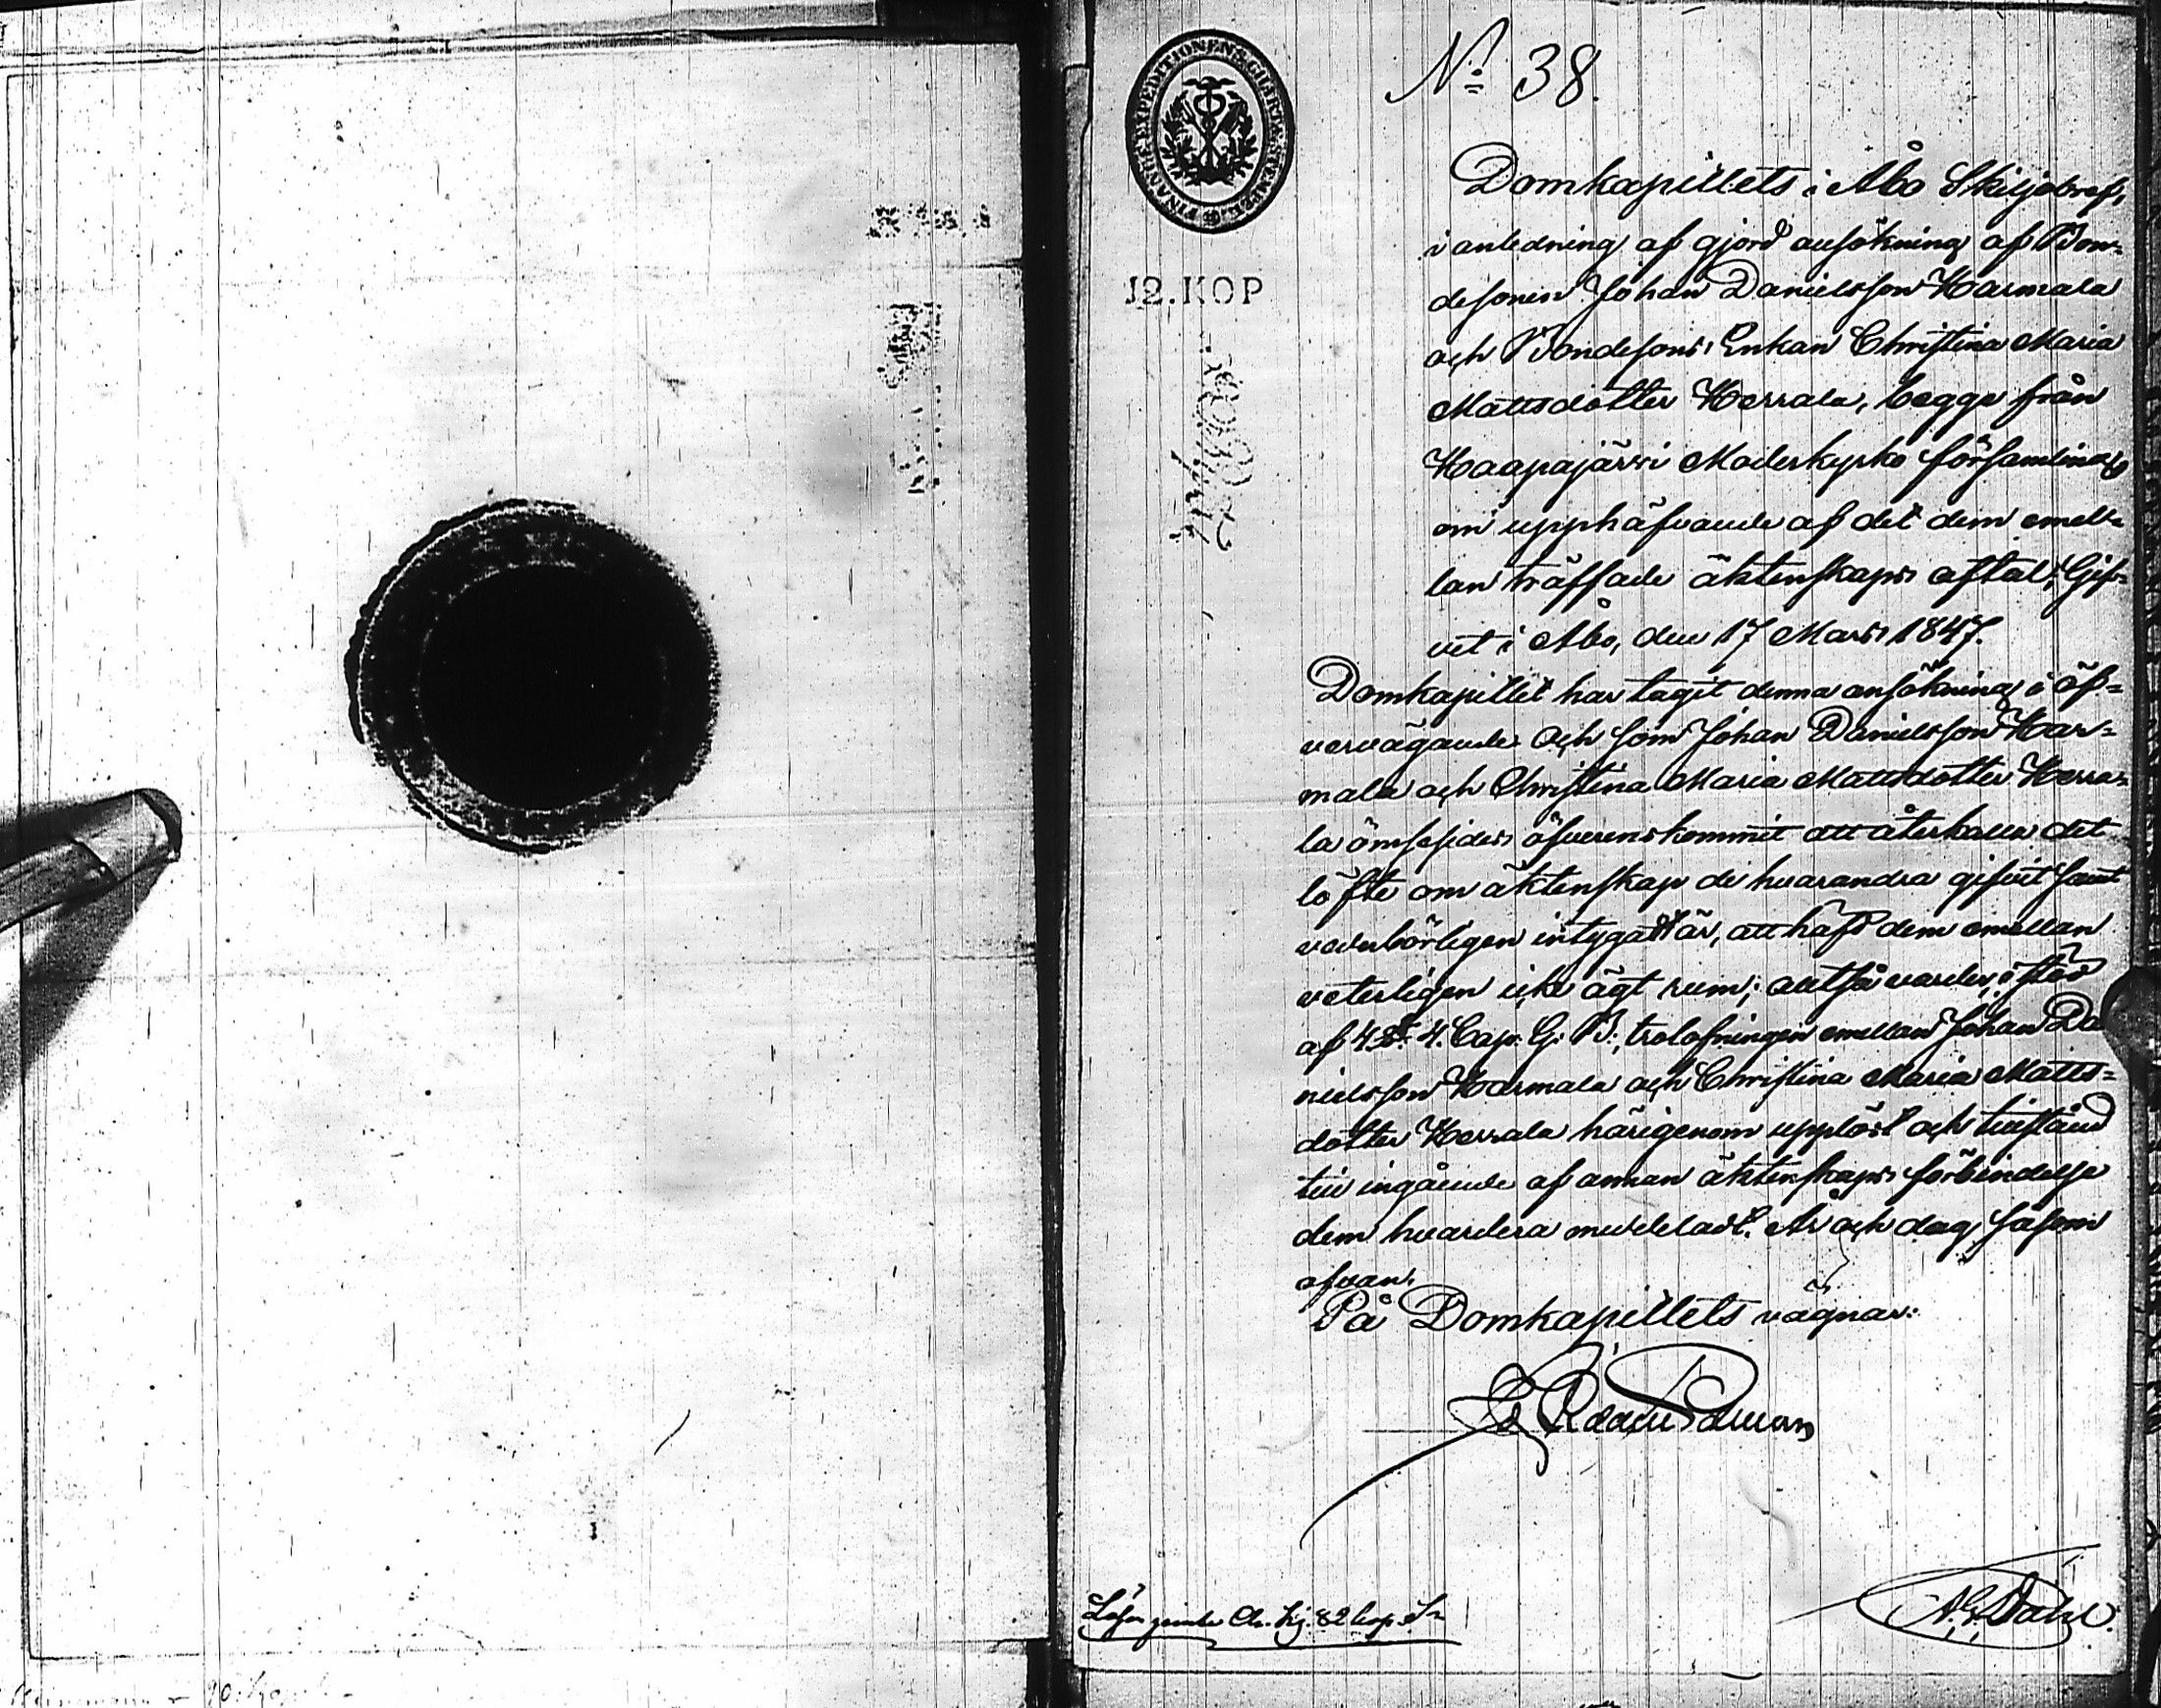 FINANCE EXPEDITIONENS CHARTÆ STEMPEL
12.KOP
N:o 38.
Domkapitlets i Åbo Skiljobref,
i anledning af gjord ansökning af Bon-
desonen Johan Danielsson Karmala
och Bondesons Enkan Christina Maria
Mattsdotter Kerrala, begge från
Haapajärvi Moderkyrko församling
om upphäfvande af det dem emel-
lan träffade äktenskaps aftal; Gif-
vet i Åbo, den 17 Mars 1847.
Domkapitlet har tagit denna ansökning i öf-
vervägande och som Johan Danielsson Kar-
mala och Christina Maria Mattsdotter Kerra-
la ömsesides öfverenskommit att återkalla det
löfte om äktenskap de hvarandra gifvit samt
vederbörligen intygadt är, att häfd dem emellan
veterligen icke ägt rum; alltså varder, i stöd
af 4 §. 4. Cap. G. B., trolofningen emellan Johan Da
nielsson Karmala och Christina Maria Matts-
dotter Kerrala härigenom upplöst och tillstånd
till ingående af annan äktenskaps förbindelse
dem hvardera meddeladt. År och dag såsom
ofvan.
På Domkapitlets vägnar:
A. G. Dahl.
Lösen jemte Ch. Sig. 82 kop. Sr